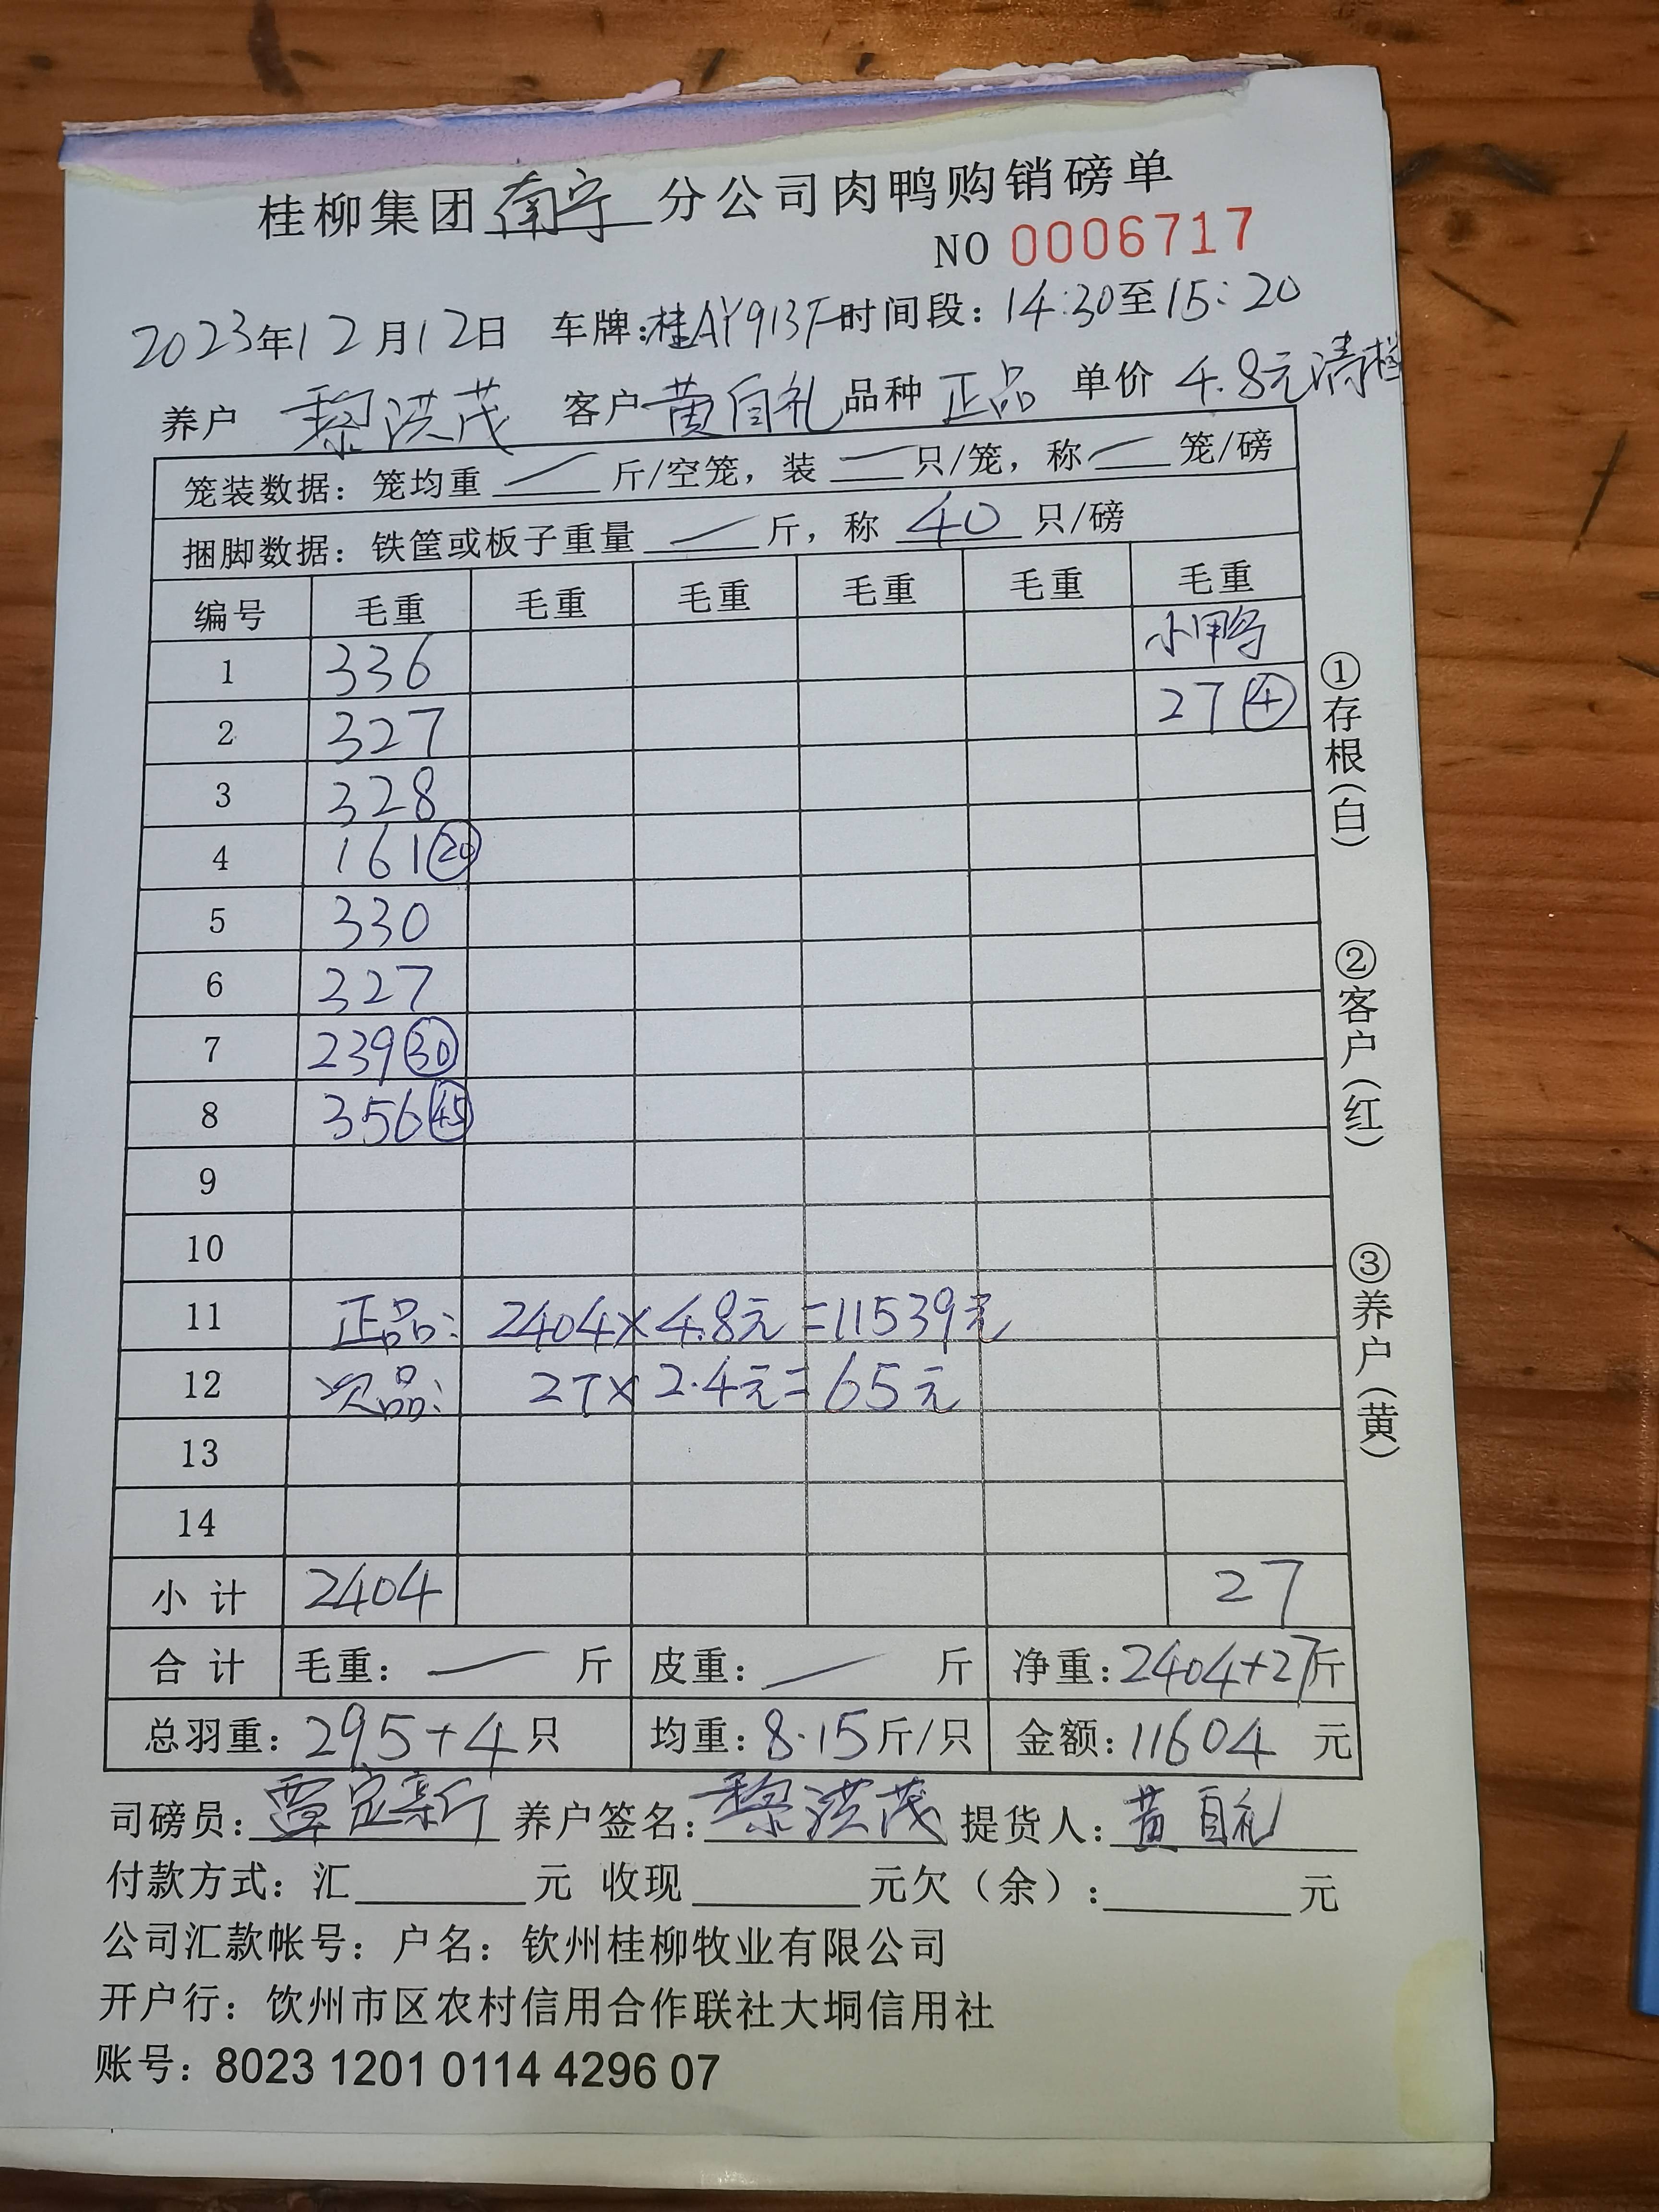 桂柳集团南宁分公司肉鸭购销磅单
NO 0006717
2023年12月12日 车牌:桂AY913F时间段: 14:30至15:20
养户 黎洪茂 客户黄自礼 品种 正品 单价 4.8元清栏
笼装数据: 笼均重 — 斤/空笼, 装 — 只/笼, 称 — 笼/磅
捆脚数据: 铁筐或板子重量 — 斤, 称 40 只/磅
编号 毛重 毛重 毛重 毛重 毛重 毛重
1 336 小鸭
2 327 27④
3 328
4 161⑳
5 330
6 327
7 239㉚
8 356㊺
9
10
11 正品: 2404×4.8元=11539元
12 次品: 27×2.4元=65元
13
14
小计 2404 27
合计 毛重: — 斤 皮重: — 斤 净重:2404+27斤
总羽重: 295+4只 均重: 8.15斤/只 金额: 11604 元
司磅员: 覃定新 养户签名: 黎洪茂 提货人: 黄自礼
付款方式: 汇 元 收现 元欠(余): 元
公司汇款帐号: 户名: 钦州桂柳牧业有限公司
开户行: 饮州市区农村信用合作联社大垌信用社
账号: 8023 1201 0114 4296 07
①存根(白)
②客户(红)
③养户(黄)